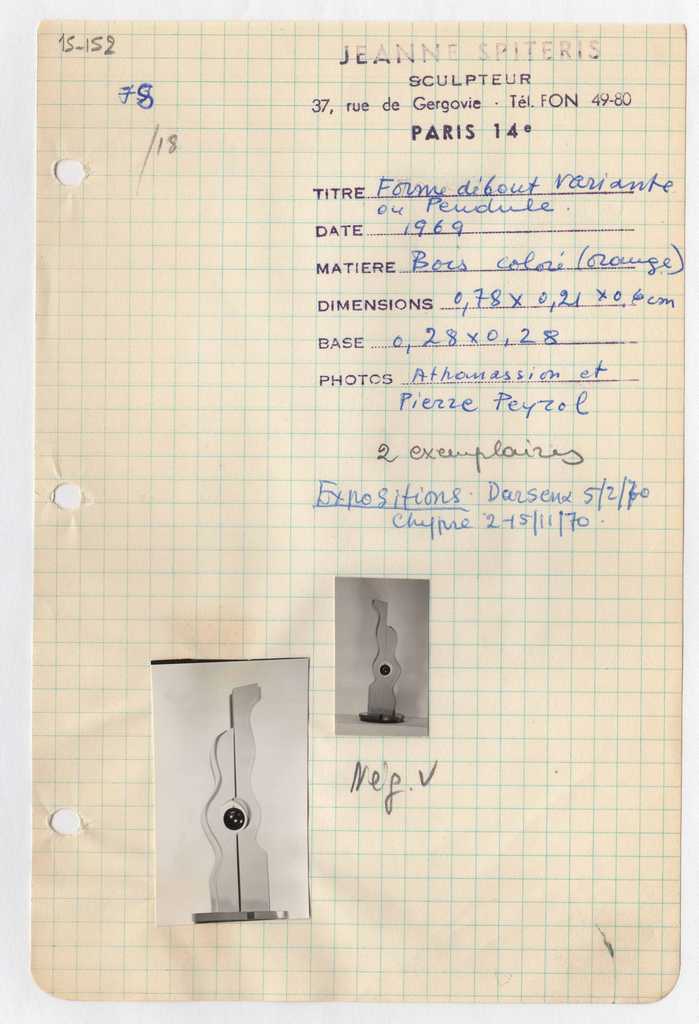 15-152
78
/18
JEANNE SPITERIS
SCULPTEUR
37, rue de Gergovie · Tél. FON 49-80
PARIS 14e
TITRE Forme débout Variante
ou Pendule.
DATE 1969
MATIERE Bois coloré (orange)
DIMENSIONS 0,78 x 0,21 x 0,6 cm
BASE 0,28 x 0,28
PHOTOS Athanassion et
Pierre Peyrol
2 exemplaires
Expositions. Darseux 5/2/70
Chypre 2-15/11/70.
Nég. V